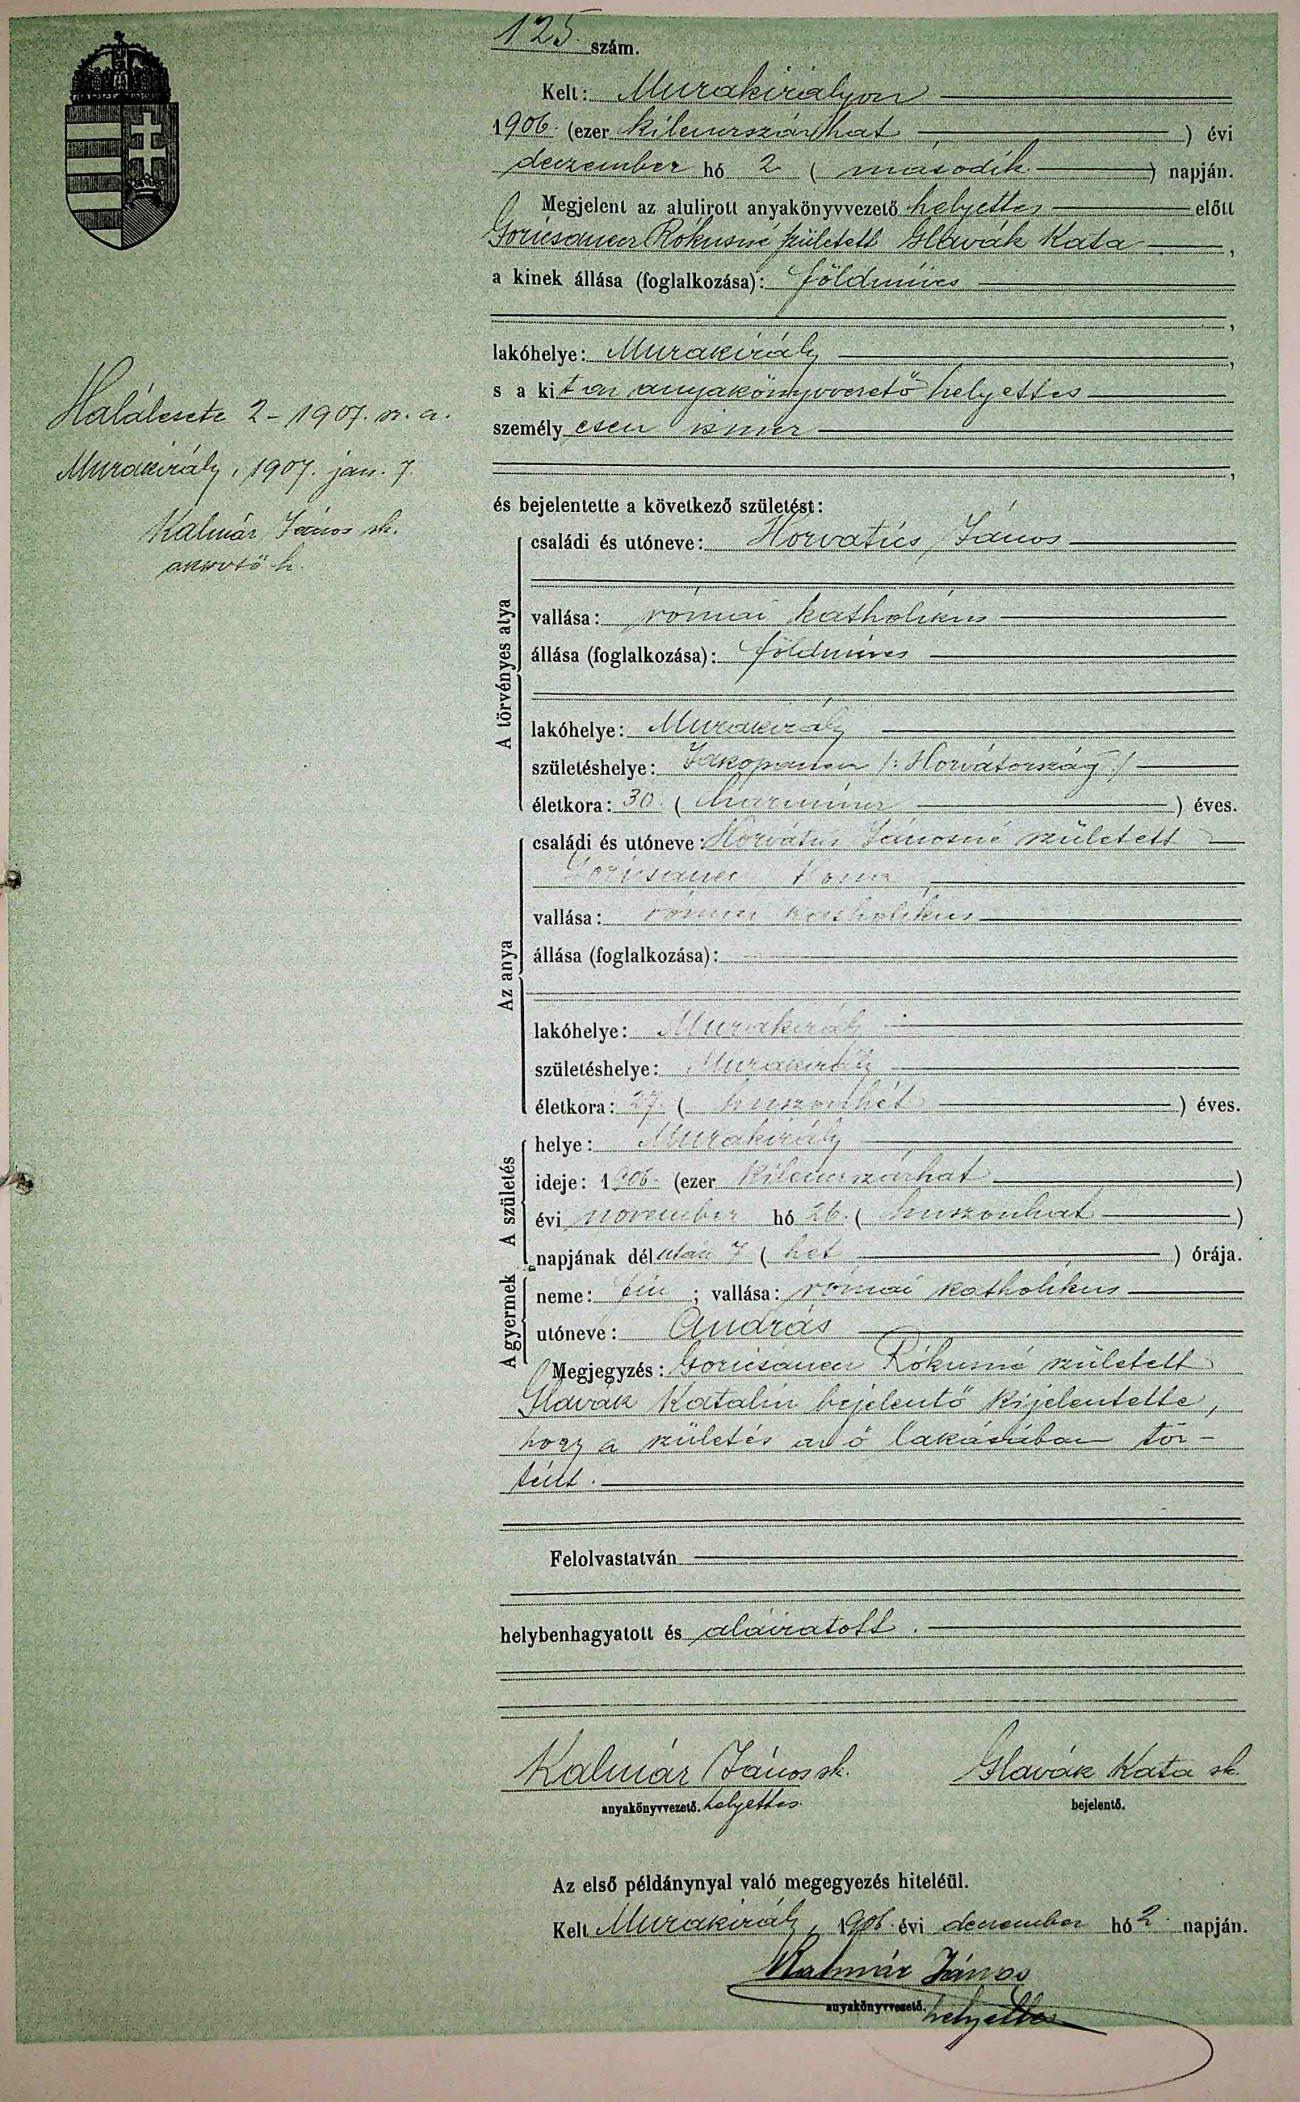 125. szám.
Kelt: Murakirályon
1906. (ezer kilencszázhat) évi
deczember hó 2 (második) napján.
Megjelent az alulirott anyakönyvvezető helyettes előtt
Goricsanecz Rokusné született Glavák Kata,
a kinek állása (foglalkozása): földmíves
,
lakóhelye: Murakirály,
s a kit az anyakönyvvezető helyettes
személyesen ismer
,
és bejelentette a következő születést:
A törvényes atya
családi és utóneve: Horvatics János
vallása: római katholikus
állása (foglalkozása): földmíves
lakóhelye: Murakirály
születéshelye: /: Horvátország :/
életkora: 30. (harmincz) éves.
Az anya
családi és utóneve: Horvátics Jánosné született
Goricsanecz
vallása: római katholikus
állása (foglalkozása):
lakóhelye: Murakirály
születéshelye: Murakirály
életkora: 27. (huszonhét) éves.
A születés
helye: Murakirály
ideje: 1906. (ezer kilenczszázhat)
évi november hó 26. (huszonhat)
napjának délután 7 (hét) órája.
A gyermek
neme: fiu; vallása: római katholikus
utóneve: András
Megjegyzés: Goricsánecz Rókusné született
Glavák Katalin bejelentő kijelentette,
hogy a születés az ő lakásában tör-
tént.
Felolvastatván
helybenhagyatott és aláiratott.
Kalmár János sk. Glavák Kata sk.
anyakönyvvezető. helyettes bejelentő.
Az első példánynyal való megegyezés hiteléül.
Kelt Murakirály, 1906. évi deczember hó 2. napján.
Kalmár János
anyakönyvvezető. helyettes
Halálesete 2-1907. sz. a.
Murakirály, 1907. jan. 7.
Kalmár János sk.